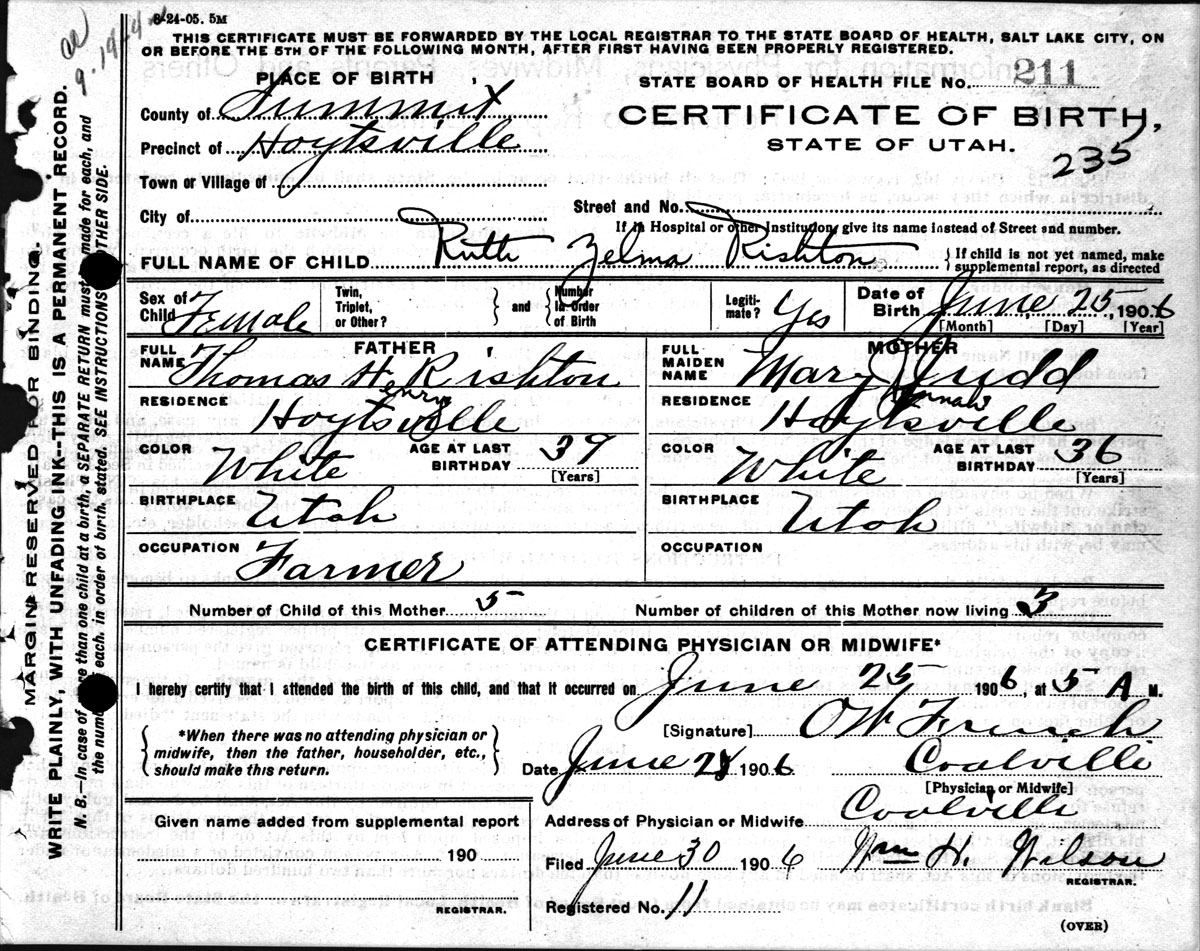 8-24-05. 5M
THIS CERTIFICATE MUST BE FORWARDED BY THE LOCAL REGISTRAR TO THE STATE BOARD OF HEALTH, SALT LAKE CITY, ON
OR BEFORE THE 5TH OF THE FOLLOWING MONTH, AFTER FIRST HAVING BEEN PROPERLY REGISTERED.
PLACE OF BIRTH
STATE BOARD OF HEALTH FILE No. 211
County of Summit
CERTIFICATE OF BIRTH,
Precinct of Hoytsville
STATE OF UTAH.
235
Town or Village of
City of
Street and No.
If in Hospital or other Institution, give its name instead of Street and number.
FULL NAME OF CHILD Ruth Zelma Rishton } If child is not yet named, make supplemental report, as directed
Sex of Child Female
Twin, Triplet, or Other? } and { Number in Order of Birth
Legitimate? Yes
Date of Birth June 25, 1906
[Month] [Day] [Year]
FATHER
FULL NAME Thomas H Rishton
enry
RESIDENCE Hoytsville
COLOR White
AGE AT LAST BIRTHDAY 39
[Years]
BIRTHPLACE Utah
OCCUPATION Farmer
MOTHER
FULL MAIDEN NAME Mary Judd
Hannah
RESIDENCE Hoytsville
COLOR White
AGE AT LAST BIRTHDAY 36
[Years]
BIRTHPLACE Utah
OCCUPATION
Number of Child of this Mother 5 Number of children of this Mother now living 3
CERTIFICATE OF ATTENDING PHYSICIAN OR MIDWIFE*
I hereby certify that I attended the birth of this child, and that it occurred on June 25 1906, at 5 A M.
{ *When there was no attending physician or
midwife, then the father, householder, etc.,
should make this return. }
[Signature] O W French
Date June 28 1906 Coalville
[Physician or Midwife]
Given name added from supplemental report
190
REGISTRAR.
Address of Physician or Midwife Coalville
Filed June 30 1906 Wm H. Wilson
REGISTRAR.
Registered No. 11
(OVER)
MARGIN RESERVED FOR BINDING.
WRITE PLAINLY, WITH UNFADING INK--THIS IS A PERMANENT RECORD.
N. B.—In case of more than one child at a birth, a SEPARATE RETURN must be made for each, and
the number of each, in order of birth, stated. SEE INSTRUCTIONS OTHER SIDE.